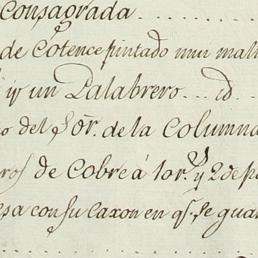 Consagrada
de Cotence pintado muy mal
y un Palabrero .. id
del Sor. de la Columna
de Cobre á 10 rs. y 2 de
con su Caxon en qe. se